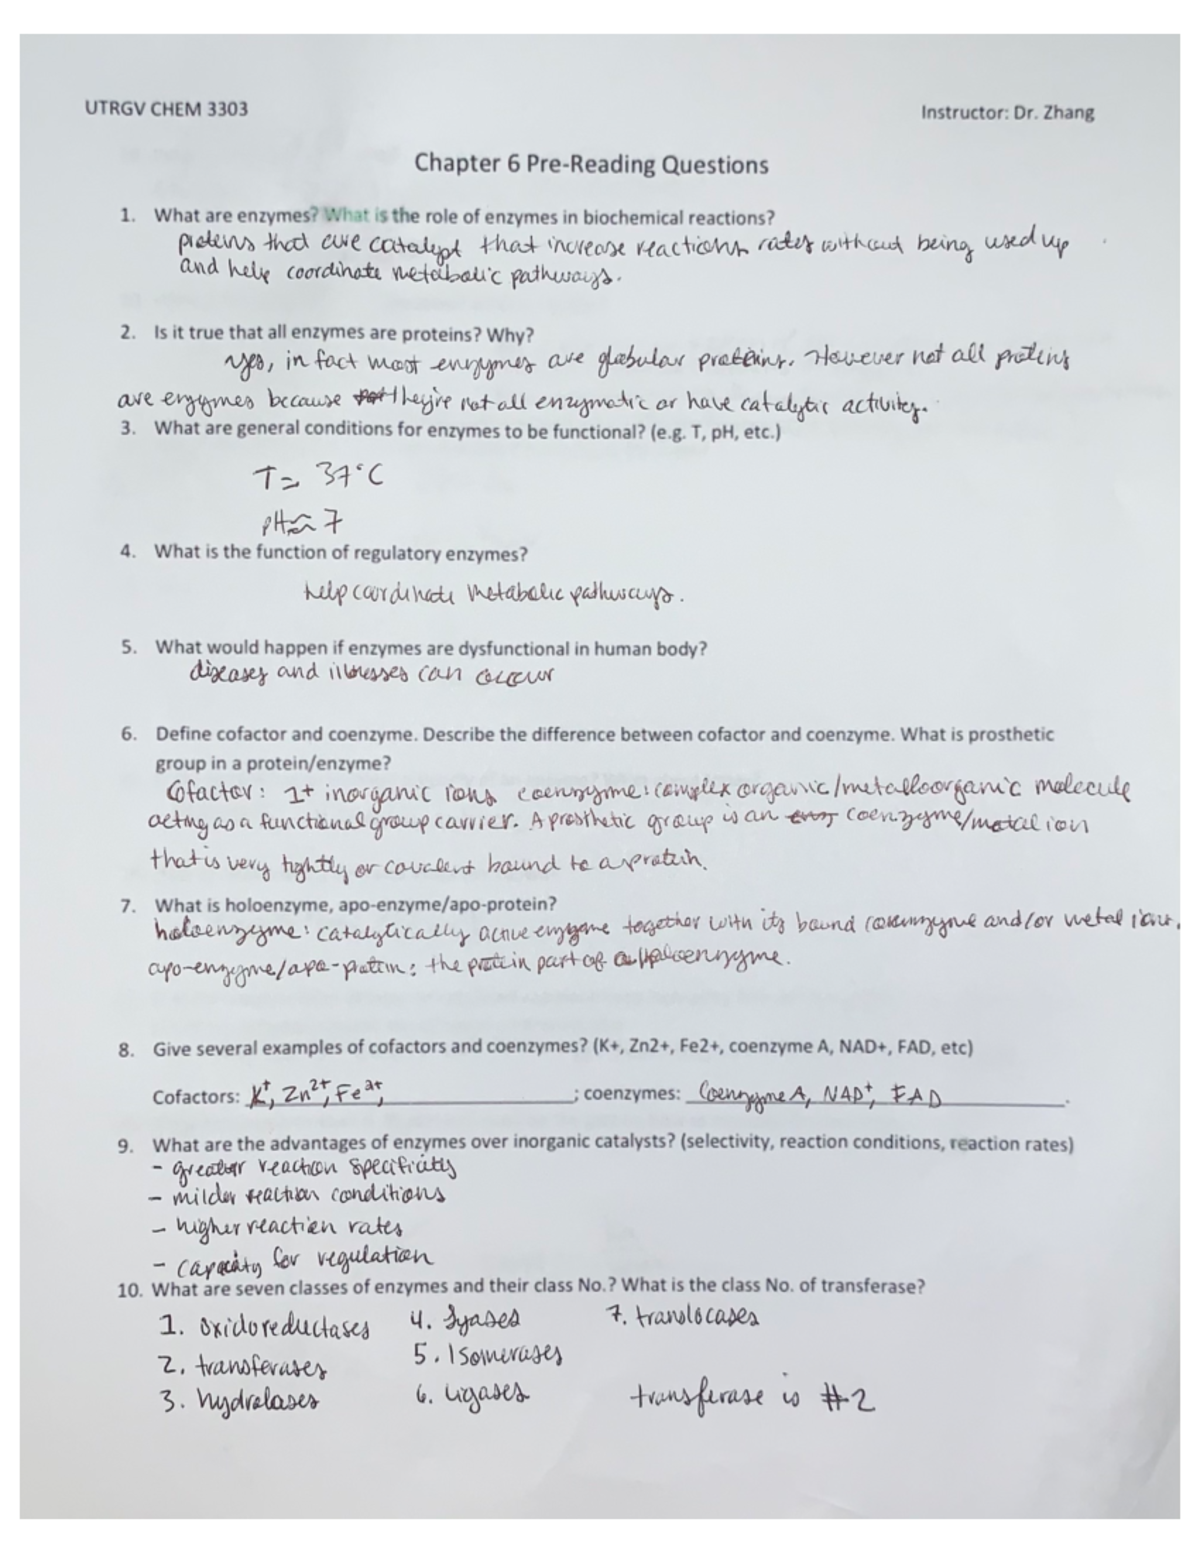 UTRGV CHEM 3303
Instructor: Dr. Zhang
Chapter 6 Pre-Reading Questions
1. What are enzymes? What is the role of enzymes in biochemical reactions?
proteins that are catalyst that increase reactions rates without being used up
and help coordinate metabolic pathways.
2. Is it true that all enzymes are proteins? Why?
yes, in fact most enzymes are globular proteins. However not all proteins
are enzymes because they're not all enzymatic or have catalytic activity.
3. What are general conditions for enzymes to be functional? (e.g. T, pH, etc.)
T= 37°C
pH≈ 7
4. What is the function of regulatory enzymes?
help coordinate metabolic pathways.
5. What would happen if enzymes are dysfunctional in human body?
diseases and illnesses can occur
6. Define cofactor and coenzyme. Describe the difference between cofactor and coenzyme. What is prosthetic
group in a protein/enzyme?
Cofactor: 1+ inorganic ions coenzyme: complex organic/metalloorganic molecule
acting as a functional group carrier. A prosthetic group is an coenzyme/metal ion
that is very tightly or covalent bound to a protein.
7. What is holoenzyme, apo-enzyme/apo-protein?
holoenzyme: catalytically active enzyme together with its bound coenzyme and/or metal ions.
apo-enzyme/apo-protein: the protein part of a holoenzyme.
8. Give several examples of cofactors and coenzymes? (K+, Zn2+, Fe2+, coenzyme A, NAD+, FAD, etc)
Cofactors: K⁺, Zn²⁺, Fe²⁺, ; coenzymes: Coenzyme A, NAD⁺, FAD .
9. What are the advantages of enzymes over inorganic catalysts? (selectivity, reaction conditions, reaction rates)
- greater reaction specificity
- milder reaction conditions
- higher reaction rates
- capacity for regulation
10. What are seven classes of enzymes and their class No.? What is the class No. of transferase?
1. oxidoreductases 4. Lyases 7. translocases
2. transferases 5. Isomerases
3. hydrolases 6. Ligases transferase is #2